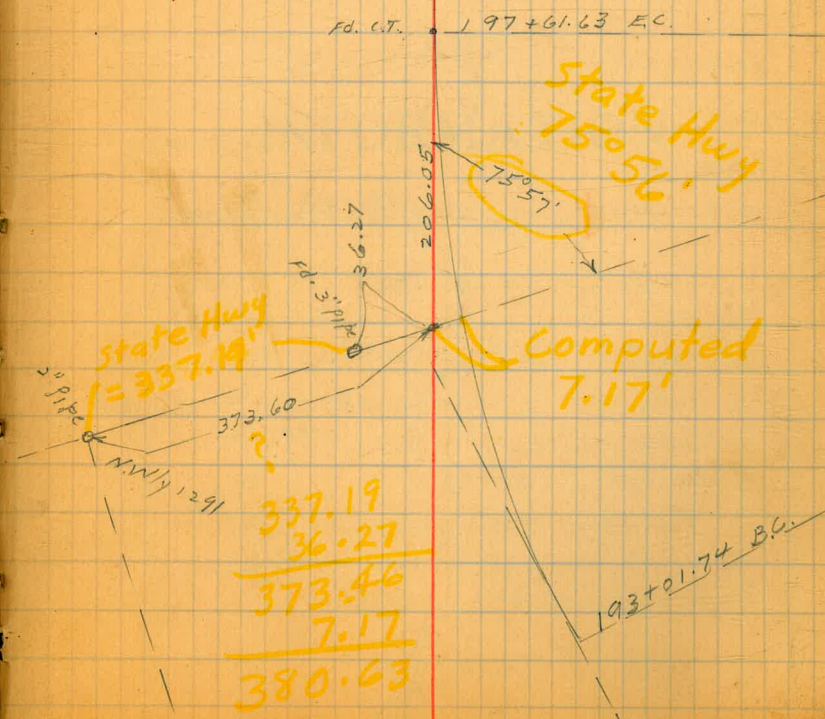 Fd. C.T. 197+61.63 E.C.
State Hwy
75°56'
75°57'
206.05
36.27
Fd. 3" pipe
State Hwy
= 337.19'
Computed
7.17'
2" pipe
373.60
?
N.W'ly 1291
337.19
36.27
373.46
7.17
380.63
193+01.74 B.C.